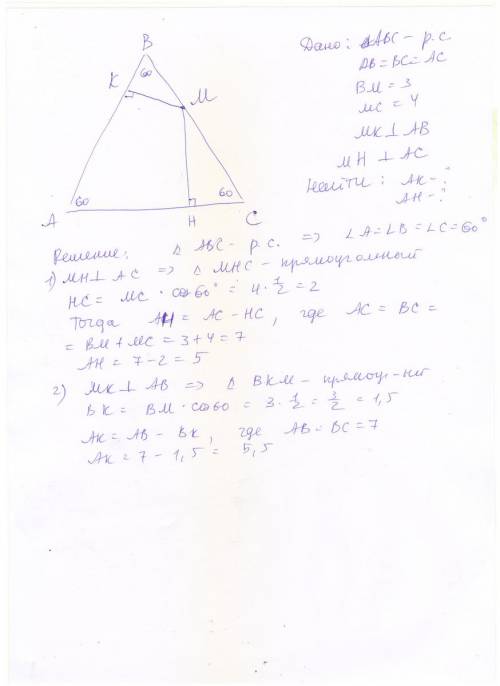 B
K
60
M
60
60
A
H
C
Дано: ΔABC – р.с
AB = BC = AC
BM = 3
MC = 4
MK ⊥ AB
MH ⊥ AC
Найти: AK - ?
AH - ?
Решение: Δ ABC – р.с. => ∠A = ∠B = ∠C = 60°
1) MH ⊥ AC => Δ MHC – прямоугольный
HC = MC · cos 60° = 4 · 1/2 = 2
Тогда AH = AC – HC, где AC = BC =
= BM + MC = 3 + 4 = 7
AH = 7 – 2 = 5
2) MK ⊥ AB => Δ BKM – прямоуг-ный
BK = BM · cos 60 = 3 · 1/2 = 3/2 = 1,5
AK = AB – BK, где AB = BC = 7
AK = 7 – 1,5 = 5,5